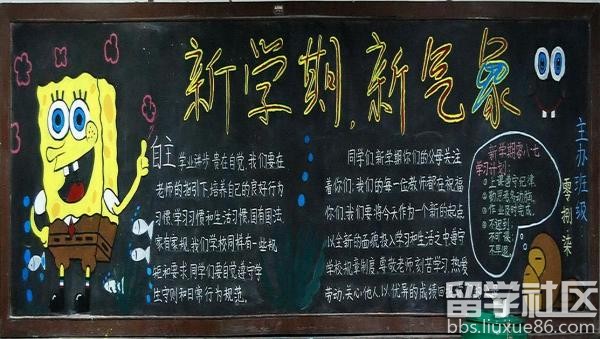 新学期,新气象
自主
学业进步贵在自觉,我们要在
老师的指引下,培养自己的良好行为
习惯,学习习惯和生活习惯,国有国法,
家有家规,我们学校同样有一些规
矩和要求,同学们要自觉遵守学
生守则和日常行为规范。
同学们,新学期你们的父母关注
着你们;我们的每一位教师都在祝福
你们;我们要将今天作为一个新的起点
以全新的面貌投入学习和生活之中,遵守
学校规章制度,尊敬老师,刻苦学习,热爱
劳动,关心他人,以优异的成绩回
新学期零八七
学习计划:
①上课遵守纪律,
②勤思考多动脑。
③作业按时完成。
④不迟到
不可假
不早退。
主办班级
零捌柒
留学社区
bbs.liuxue86.com